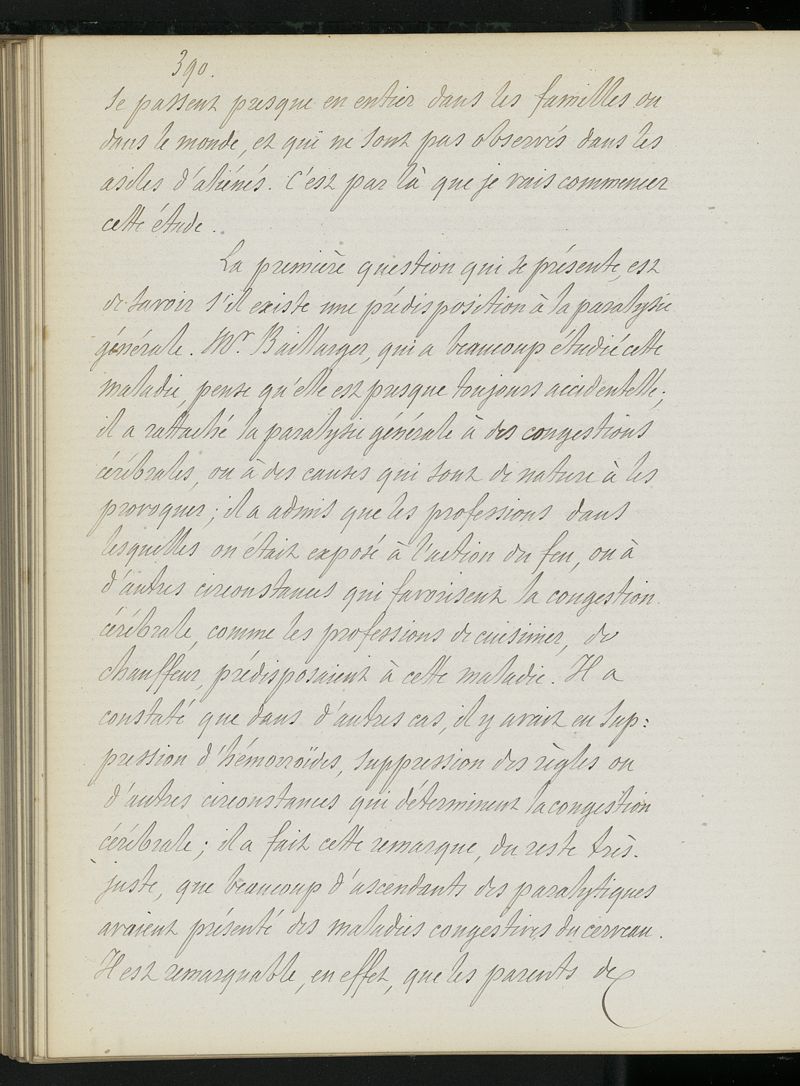 390.
se passent presque en entier dans les familles ou
dans le monde, et qui ne sont pas observés dans les
asiles d'aliénés. C'est par là que je vais commencer
cette étude.
La première question qui se présente, est
de savoir s'il existe une prédisposition à la paralysie
générale. Mr. Baillarger, qui a beaucoup étudié cette
maladie, pense qu'elle est presque toujours accidentelle;
il a rattaché la paralysie générale à des congestions
cérébrales, ou à des causes qui sont de nature à les
provoquer; il a admis que les professions dans
lesquelles on était exposé à l'action du feu, ou à
d'autres circonstances qui favorisent la congestion
cérébrale, comme les professions de cuisinier, de
chauffeur, prédisposaient à cette maladie. Il a
constaté que dans d'autres cas, il y avait eu sup:
pression d'hémorroïdes, suppression des règles ou
d'autres circonstances qui déterminent la congestion
cérébrale; il a fait cette remarque, du reste très-
juste, que beaucoup d'ascendants des paralytiques
avaient présenté des maladies congestives du cerveau.
Il est remarquable, en effet, que les parents de